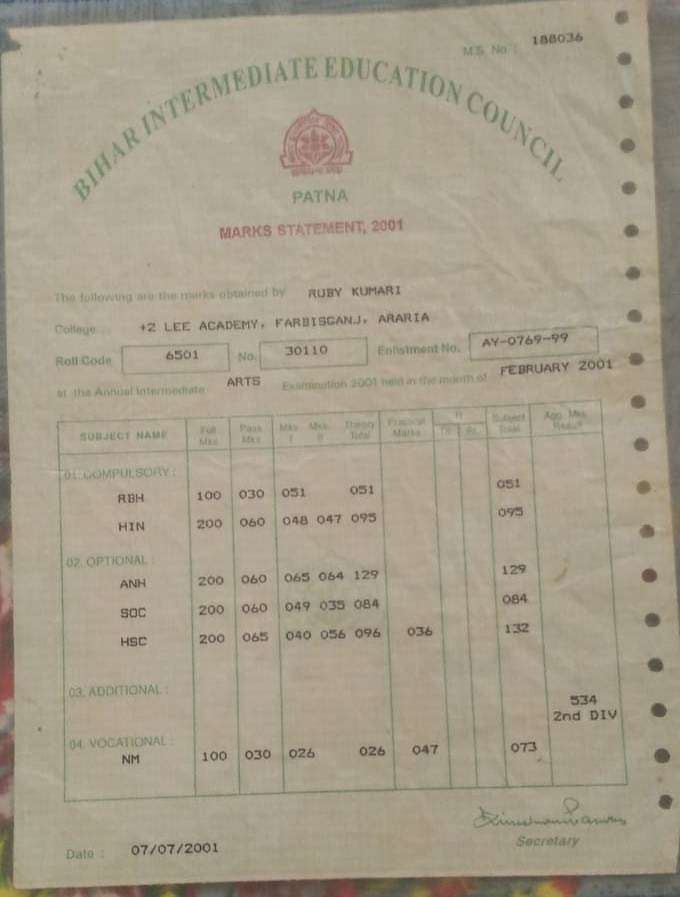 M.S. No : 188036
BIHAR INTERMEDIATE EDUCATION COUNCIL
PATNA
MARKS STATEMENT, 2001
The following are the marks obtained by RUBY KUMARI
College +2 LEE ACADEMY, FARBISGANJ, ARARIA
Roll Code 6501 No. 30110 Enlistment No. AY-0769-99
at the Annual Intermediate ARTS Examination 2001 held in the month of FEBRUARY 2001
SUBJECT NAME Full Mks Pass Mks Mks I Mks II Theory Total Practical Marks Subject Total Agg. Mks. Result
01. COMPULSORY :
RBH 100 030 051 051 051
HIN 200 060 048 047 095 095
02. OPTIONAL :
ANH 200 060 065 064 129 129
SOC 200 060 049 035 084 084
HSC 200 065 040 056 096 036 132
03. ADDITIONAL :
534
2nd DIV
04. VOCATIONAL :
NM 100 030 026 026 047 073
Secretary
Date : 07/07/2001